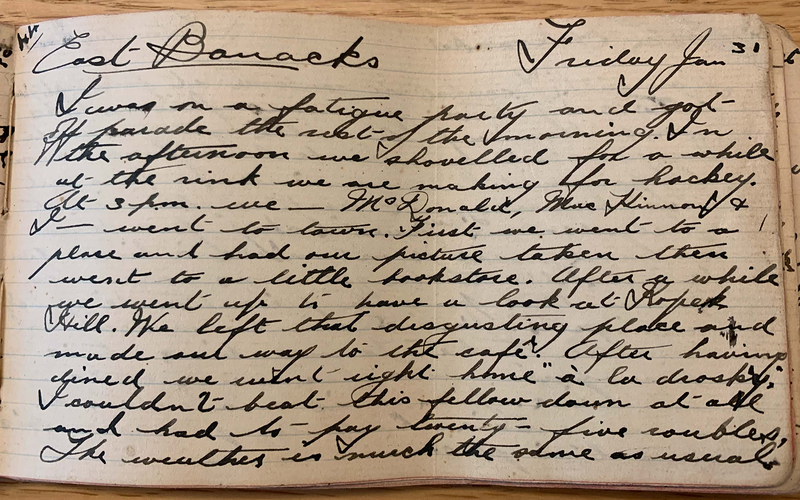 East Barracks Friday Jan 31
I was on a fatigue party and got
off parade the rest of the morning. In
the afternoon we shovelled for a while
at the rink we are making for hockey.
At 3 p.m. we — McDonald, MacKinnon &
I — went to town. First we went to a
place and had our picture taken then
went to a little bookstore. After a while
we went up to have a look at
Hill. We left that disgusting place and
made our way to the café. After having
dined we went right home "à la drosky."
I couldn't beat this fellow down at all
and had to pay twenty-five roubles.
The weather is much the same as usual.